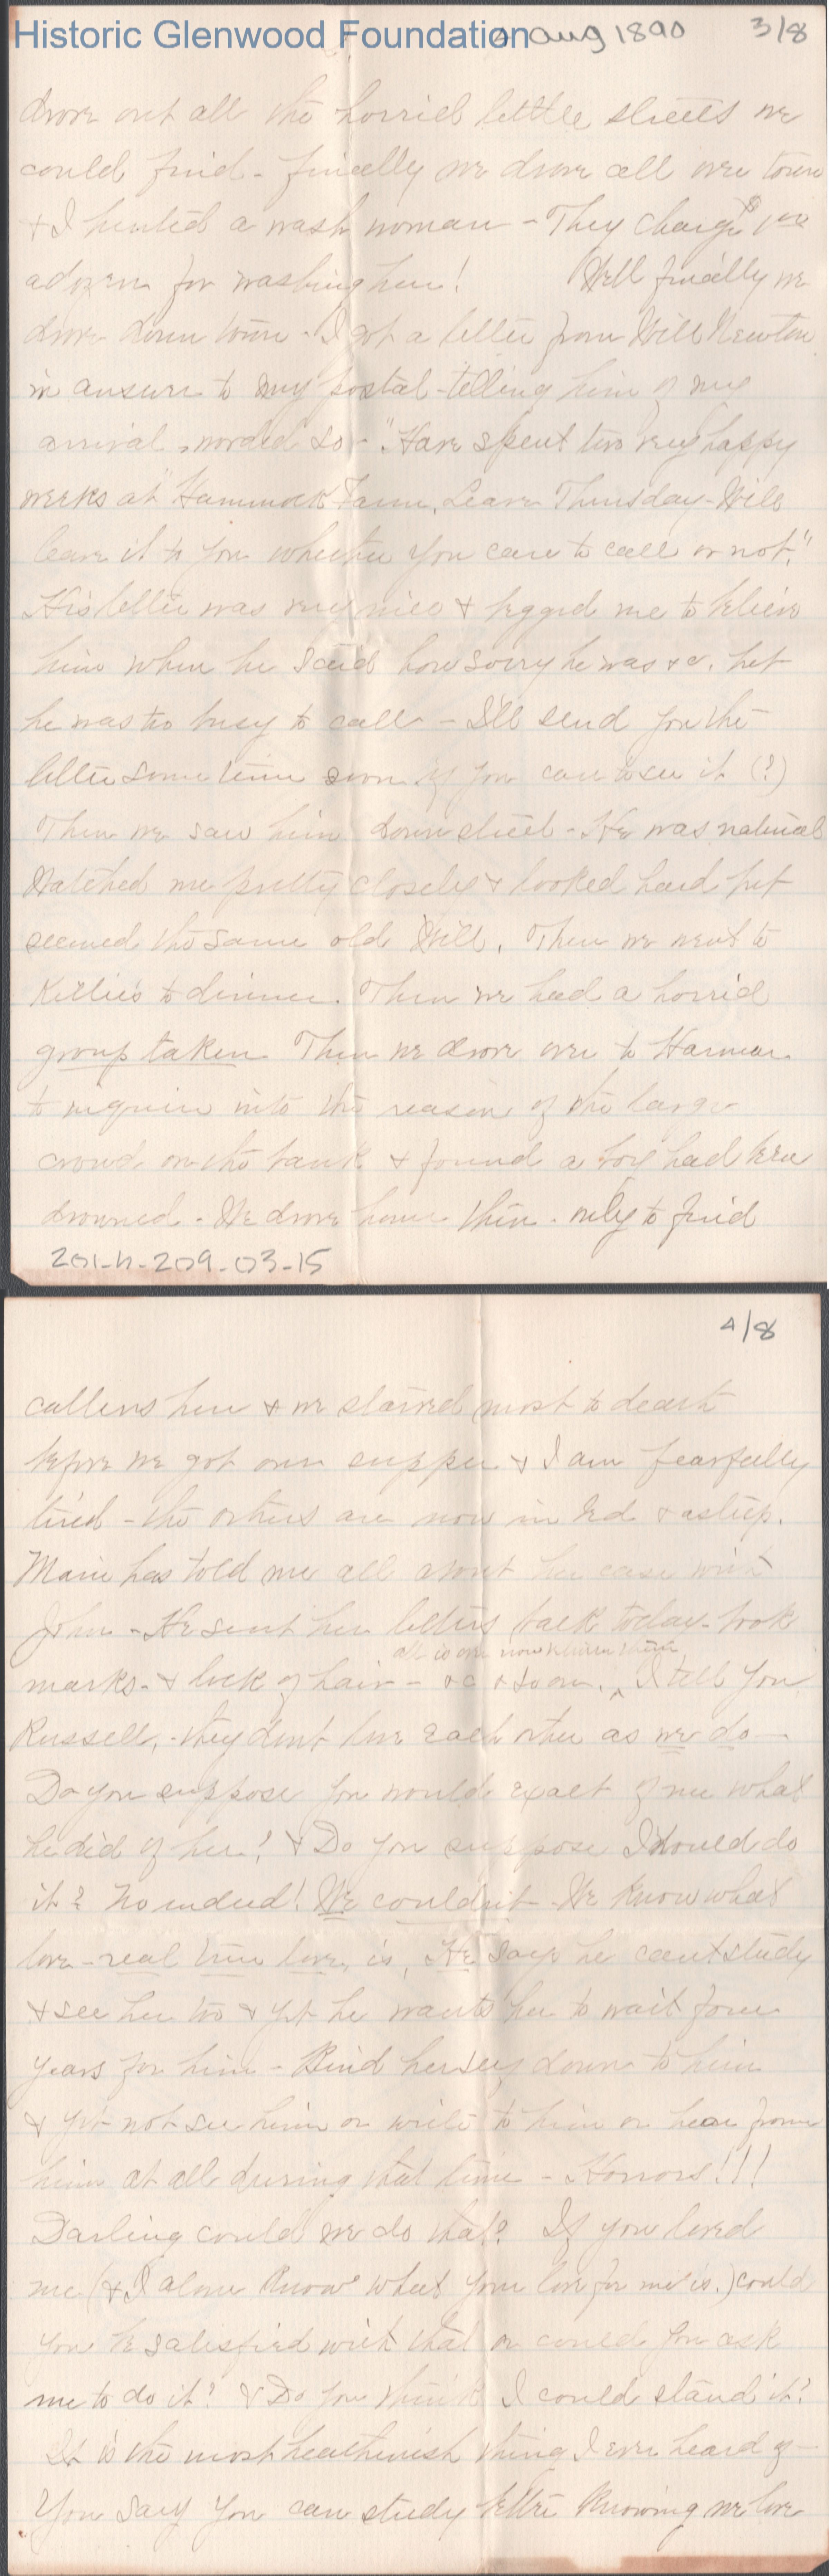 Historic Glenwood Foundation
Aug 1890 3/8
drove out all the horrid little streets we
could find - finally we drove all over town
& I hunted a wash woman - They charge $1.00
a dozen for washing here! Well finally we
drove down town - I got a letter from Will Newton
in answer to my postal telling him of my
arrival, worded so - "Have spent two very happy
weeks at "Hammock Farm, Leave Thursday - Will
leave it to you whether you care to call or not."
His letter was very nice & begged me to believe
him when he said how sorry he was &c. but
he was too busy to call - I'll send you the
letter some time soon if you care to see it (?)
Then we saw him down street - He was natural
Watched me pretty closely & looked hard but
seemed the same old Will. Then we went to
Kellie's to dinner. Then we had a horrid
group taken Then we drove over to Harmar
to inquire into the reason of the large
crowd on the bank & found a boy had been
drowned - We drove home then - only to find
201-h-209-03-15
4/8
callers here & we starved most to death
before we got our supper & I am fearfully
tired - the others are now in bed & asleep.
Marie has told me all about her case with
John - He sent her letters back today - book
all is over now between them
marks - & lock of hair - &c & so on. ^ I tell you
Russell, - they don't love each other as we do -
Do you suppose you would exact of me what
he did of her! & Do you suppose I would do
it? No indeed! We couldn't - We know what
love - real true love, is, He says he can't study
& see her too & yet he wants her to wait four
years for him - Bind herself down to him
& yet not see him or write to him or hear from
him at all during that time - Horrors!!!
Darling could we do that? If you loved
me (& I alone know what your love for me is.) could
you be satisfied with that or could you ask
me to do it? & Do you think I could stand it?
It is the most heathenish thing I ever heard of -
You say you can study better knowing we love